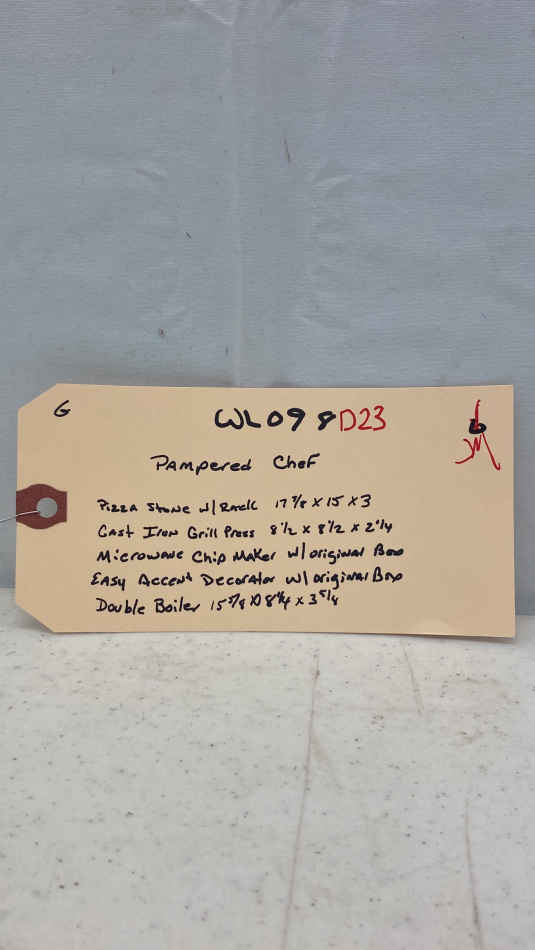 G
WL098D23
Pampered Chef
Pizza Stone w/Rack 17 7/8 x 15 x 3
Cast Iron Grill Press 8 1/2 x 8 1/2 x 2 1/4
Microwave Chip Maker w/original Box
Easy Accent Decorator w/original Box
Double Boiler 15 5/8 x 8 x 3